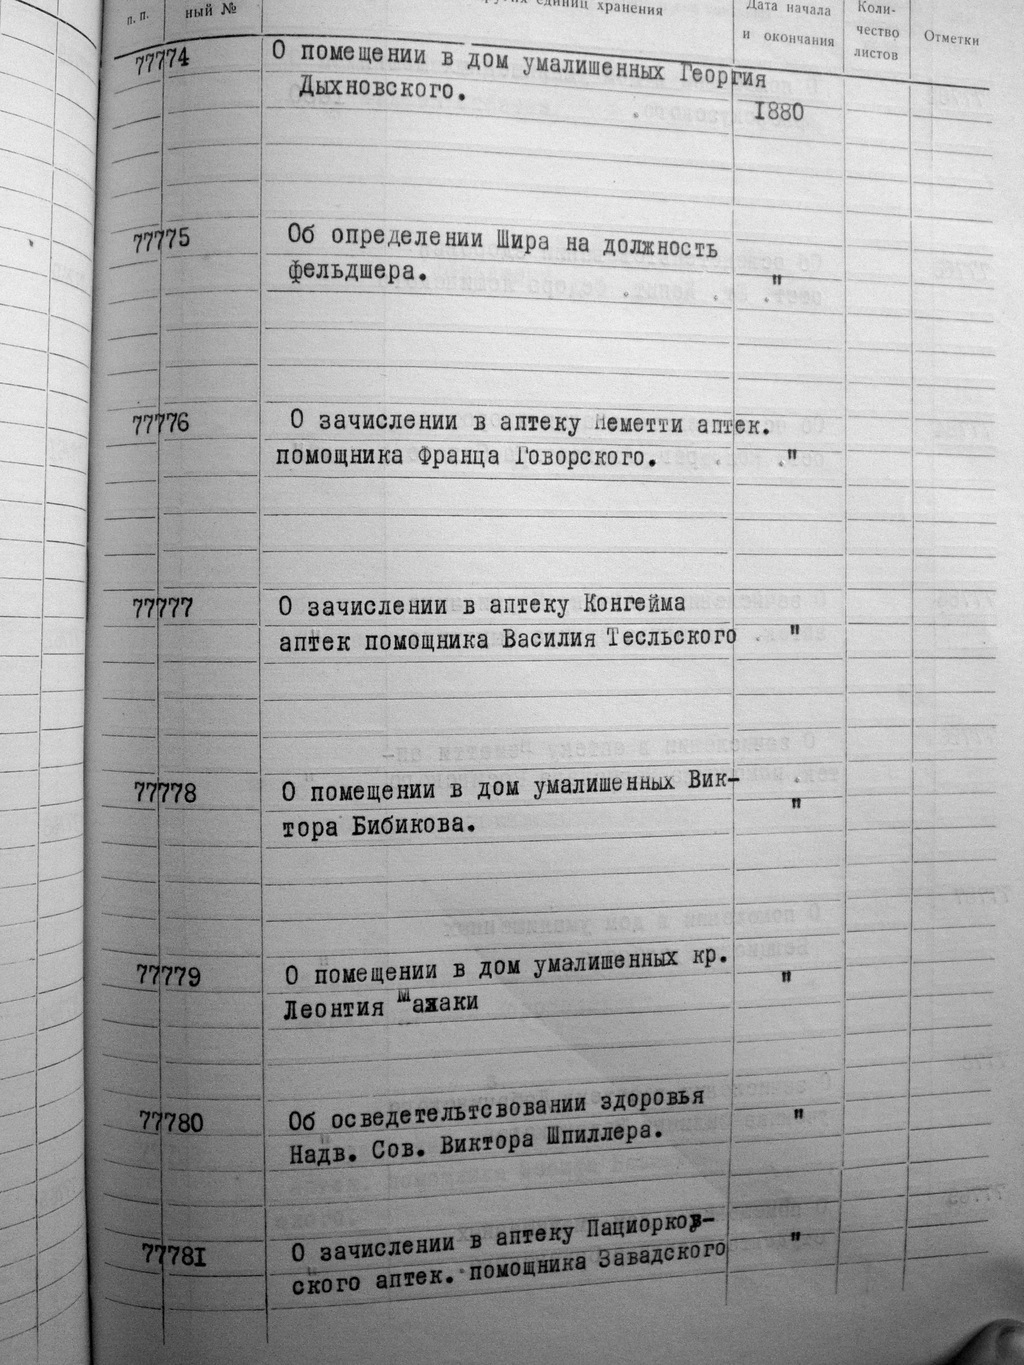 п. п.
ный №
единиц хранения
Дата начала
и окончания
Коли-
чество
листов
Отметки
77774
О помещении в дом умалишенных Георгия
Дыхновского.
1880
77775
Об определении Шира на должность
фельдшера.
"
77776
О зачислении в аптеку Неметти аптек.
помощника Франца Говорского.
"
77777
О зачислении в аптеку Конгейма
аптек помощника Василия Тесльского
"
77778
О помещении в дом умалишенных Вик-
тора Бибикова.
"
77779
О помещении в дом умалишенных кр.
Леонтия
"
77780
Об осведетельтсвовании здоровья
Надв. Сов. Виктора Шпиллера.
"
77781
О зачислении в аптеку Пациорков-
ского аптек. помощника Завадского
"